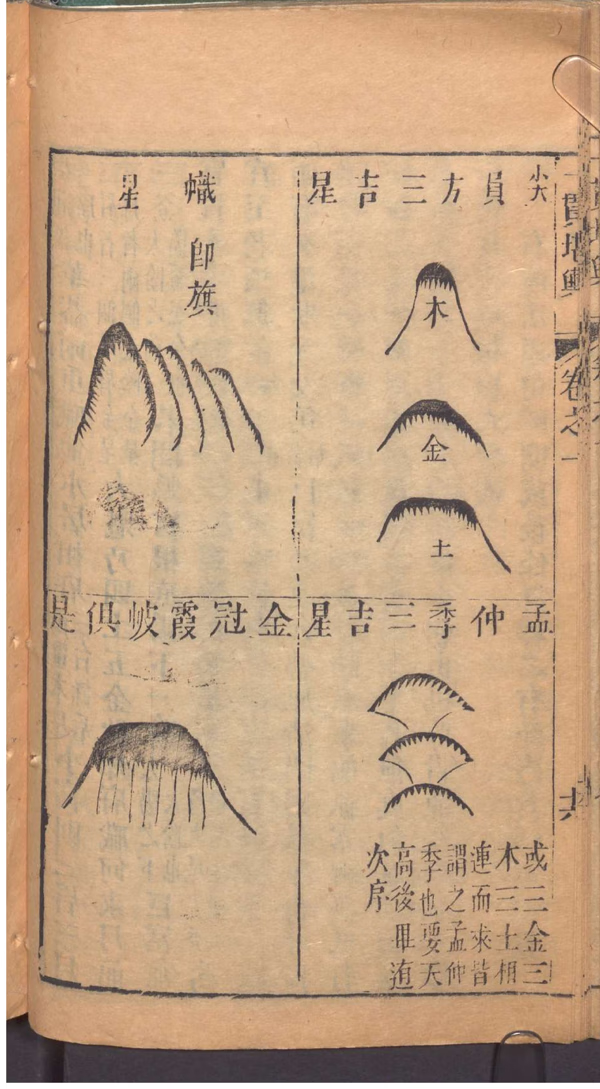 一貫堪輿
卷之一
小大員方三吉星
木
金
土
孟仲季三吉星
或三金三
木三土相
連而來皆
謂之孟仲
季也要天
高後
次序
幟即旗
星
金冠霞帔俱是